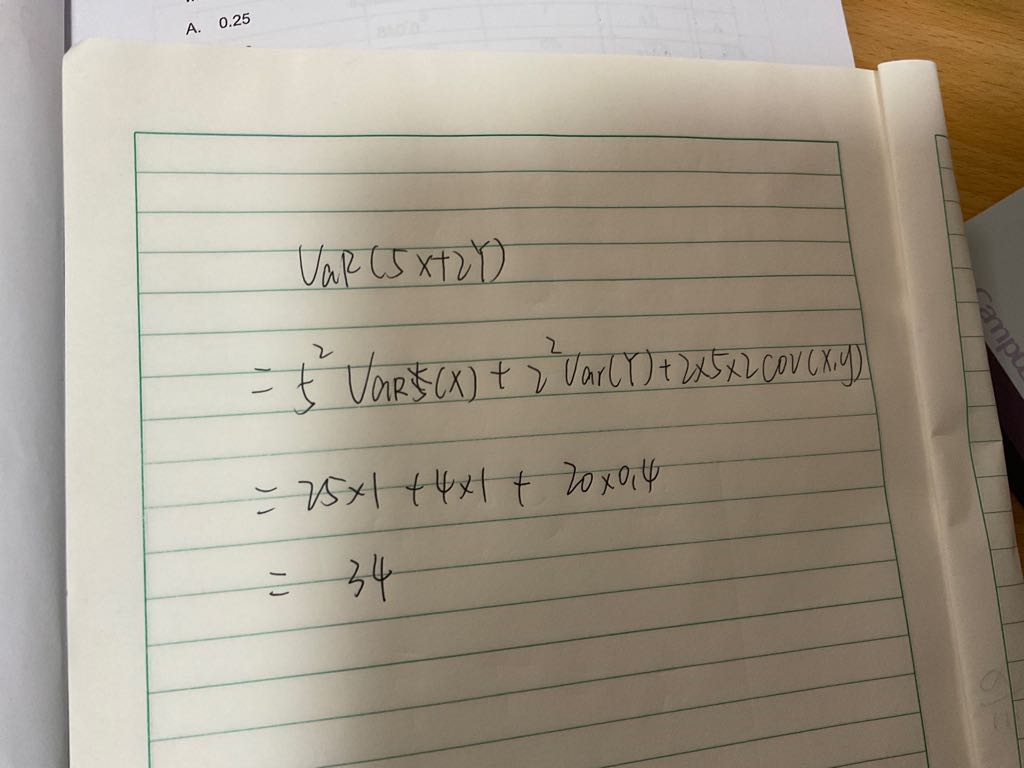 A. 0.25
VaR(5X+2Y)
= 5² VaR(X) + 2² Var(Y) + 2×5×2 cov(X,y)
= 25×1 + 4×1 + 20×0.4
= 34
Campus